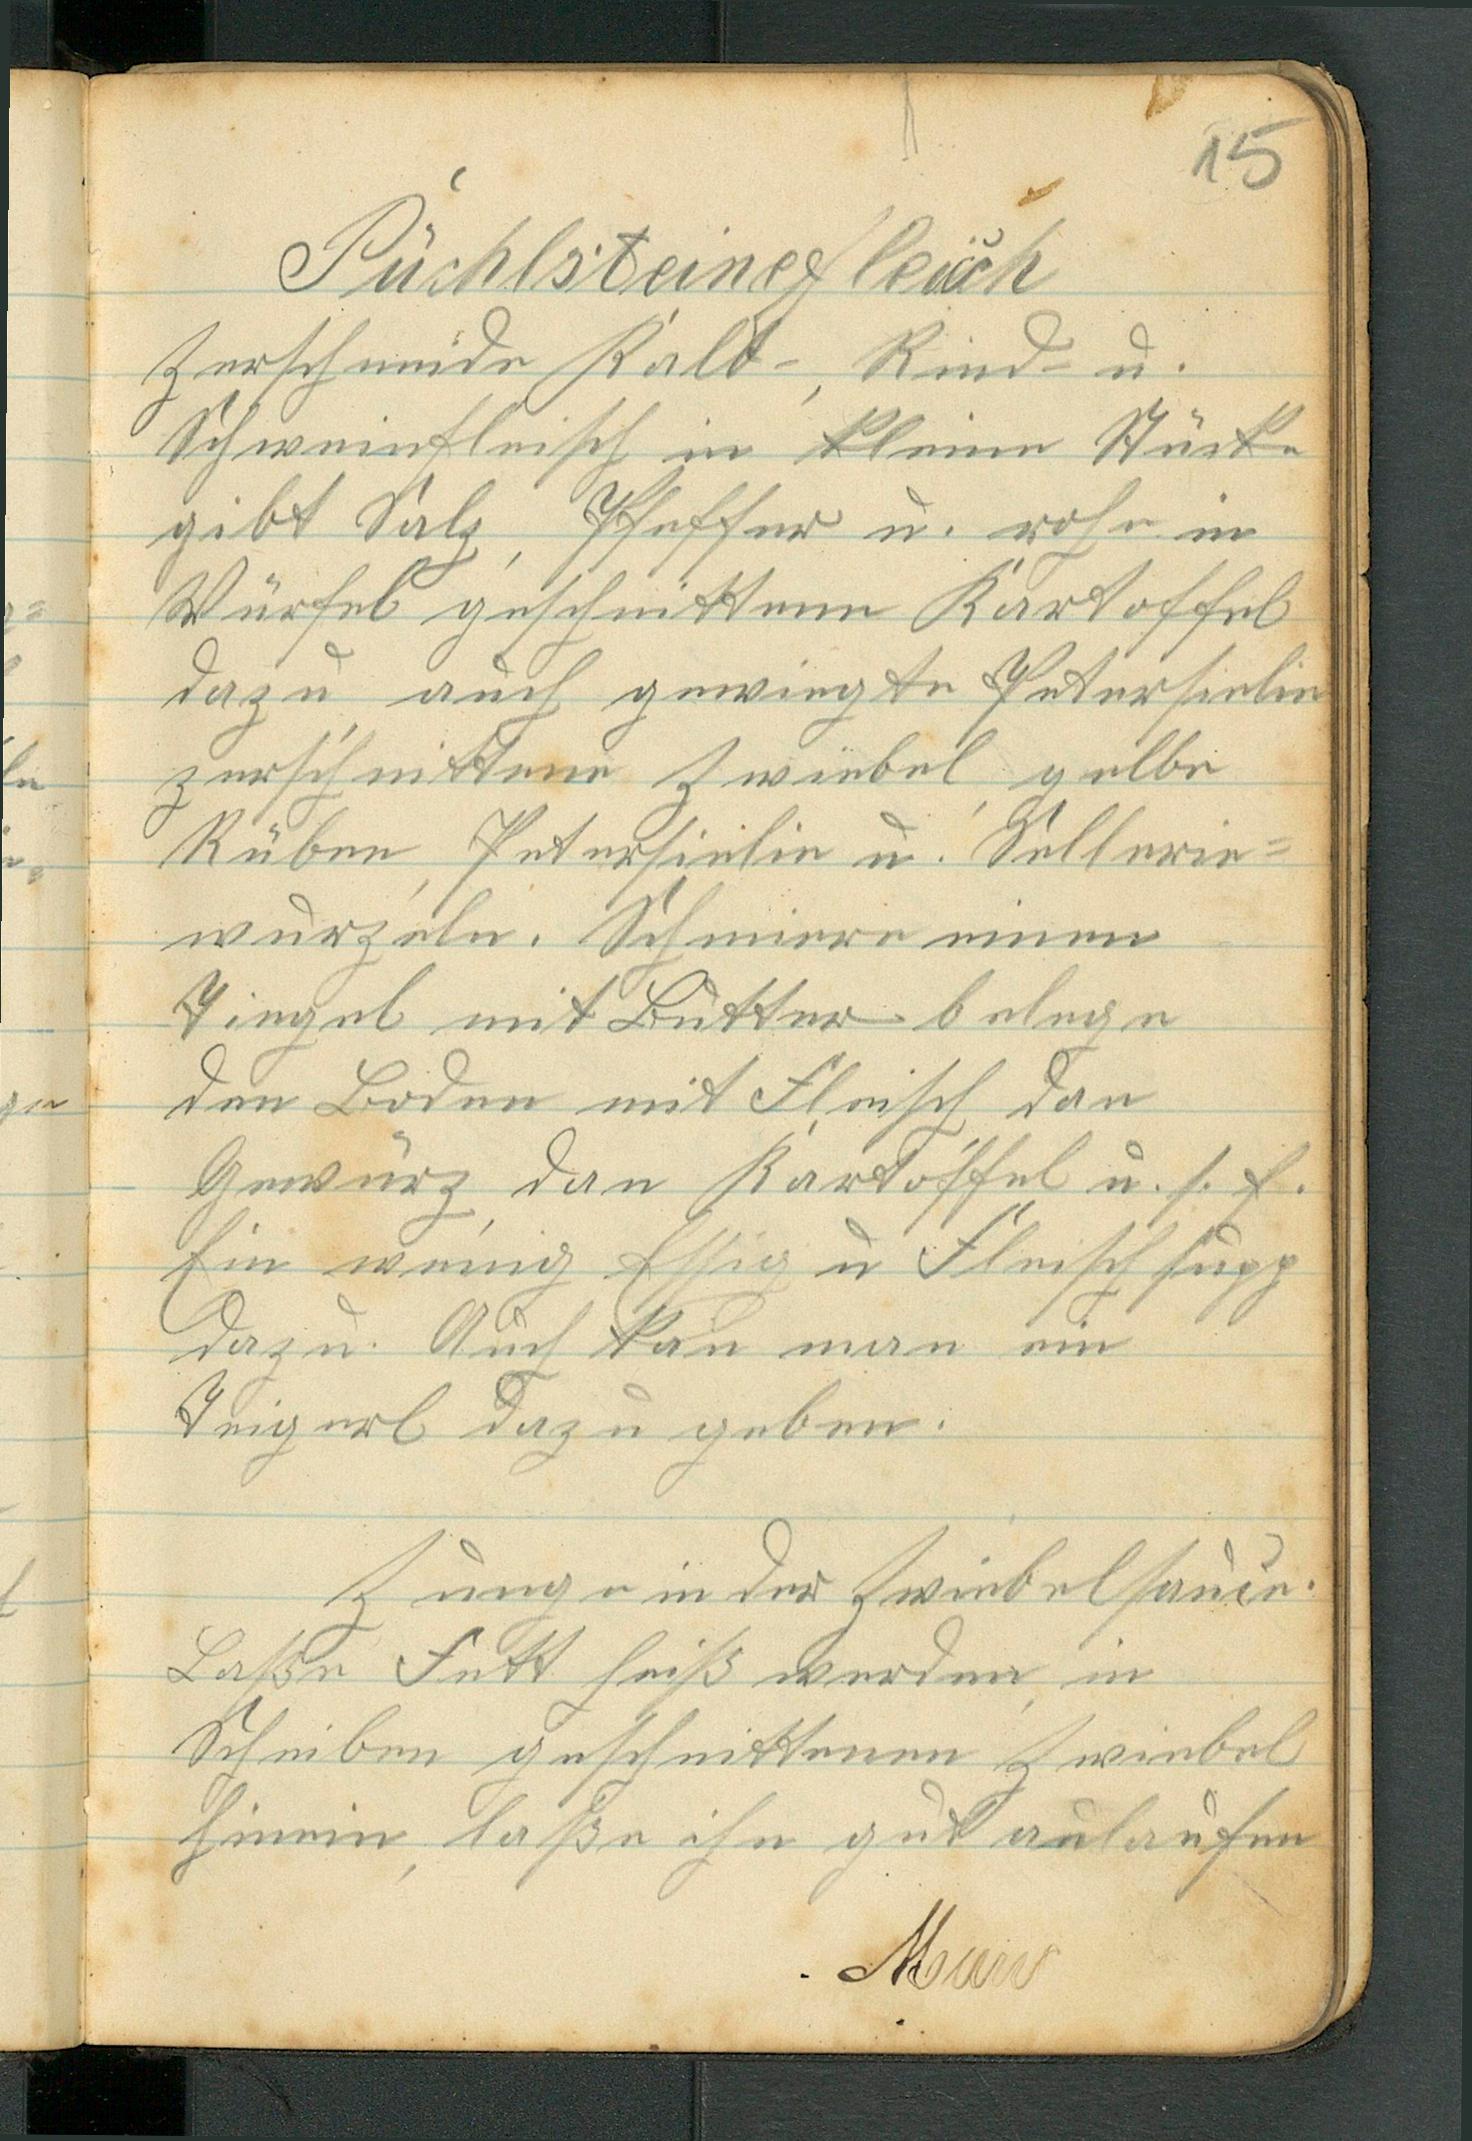 15
Püchlsteinefleich
Zerschneide Kalb-, Rind- u.
Schweinfleisch in kleine Stücke
gibt Salz, Pfeffer u. rohe in
Würfel geschnittene Kartoffel
dazu auch gewiegte Petersielie
zerschnittene Zwiebel, gelbe
Rüben, Petersielie u. Sellerie=
wurzeln. Schmiere einen
Tiegel mit Butter belege
den Boden mit Fleisch dan
Gewürz, dan Kartoffel u. s. f.
Ein wenig Essig u Fleischsupp
dazu. Auch kan man ein
Teigerl dazu geben.
Zunge in der Zwiebelsauce.
Laße Fett heiß werden, in
Scheiben geschnittenen Zwiebel
hinein, laße ihn gut anlaufen